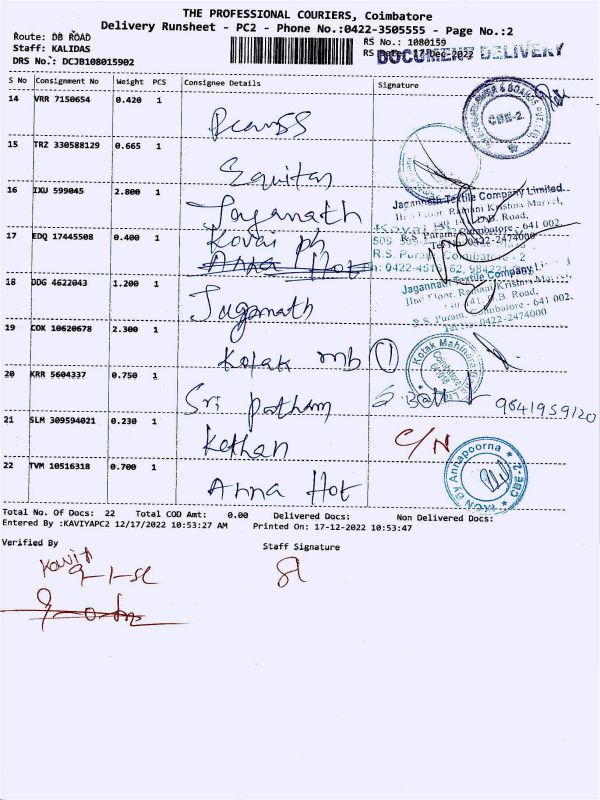 THE PROFESSIONAL COURIERS, Coimbatore
Delivery Runsheet - PC2 - Phone No.:0422-3505555 - Page No.:2
Route: DB ROAD
RS No.: 1080159
Staff: KALIDAS
RS Date: 17-Dec-2022
DOCUMENT DELIVERY
DRS No.: DCJB108015902
S No Consignment No Weight PCS Consignee Details Signature
14 VRR 7150654 0.420 1
CBE-2
15 TRZ 330588129 0.665 1 Equitas
16 IXU 599045 2.800 1 Jaganath
Jagannath Textile Company Limited
IInd Floor, Ramani Krishna Marvel,
D.B. Road,
R.S. Puram, Coimbatore - 641 002.
Tel No. 0422-2474000
17 EDQ 17445508 0.400 1 Kovai ph
Anna Hot
R.S. Puram, Coimbatore - 2
18 DDG 4622043 1.200 1 Jaganath
Jagannath Textile Company Limited
IInd Floor, Ramani Krishna Marvel,
D.B. Road,
R.S. Puram, Coimbatore - 641 002.
Tel No. 0422-2474000
19 COK 10620678 2.300 1 Kotak mb 1
Kotak Mahindra
Coimbatore
20 KRR 5604337 0.750 1 Sri
9841959120
21 SLM 309594021 0.230 1 Kethan C/N
22 TVM 10516318 0.700 1 Anna Hot
By Annapoorna
CBE-2
Total No. Of Docs: 22 Total COD Amt: 0.00 Delivered Docs: Non Delivered Docs:
Entered By :KAVIYAPC2 12/17/2022 10:53:27 AM Printed On: 17-12-2022 10:53:47
Verified By Staff Signature